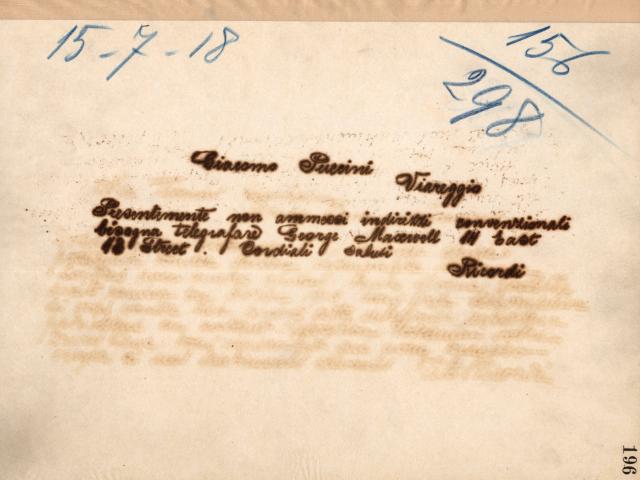 15-7-18
156
298
Giacomo Puccini
Viareggio
Presentemente non ammessi indirizzi convenzionali
bisogna telegrafare George Maxwell 14 East
43 Street. Cordiali saluti
Ricordi
196